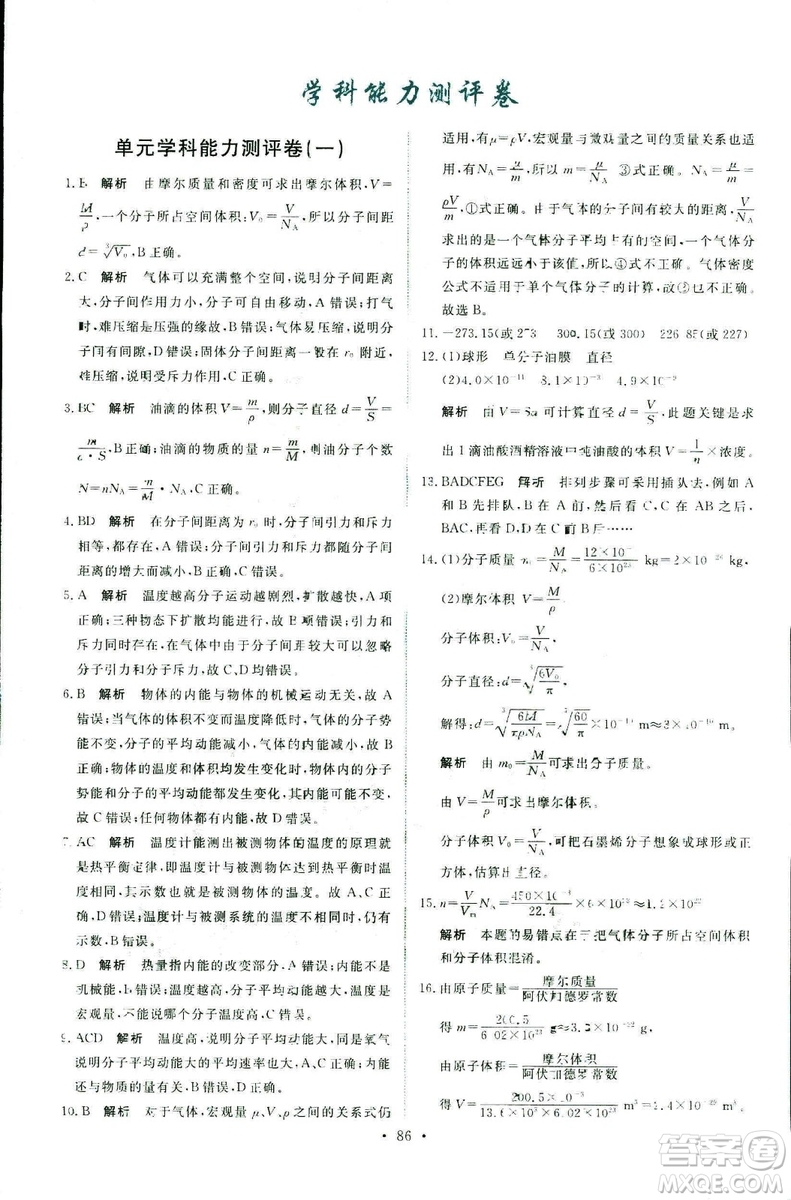 学科能力测评卷
单元学科能力测评卷(一)
1. B 解析 由摩尔质量和密度可求出摩尔体积,V=
M/ρ,一个分子所占空间体积:V₀=V/N_A,所以分子间距
d=∛V₀,B正确。
2. C 解析 气体可以充满整个空间,说明分子间距离
大,分子间作用力小,分子可自由移动,A错误;打气
时,难压缩是压强的缘故,B错误;气体易压缩,说明分
子间有间隙,C正确;固体分子间距离一般在r₀附近,
难压缩,是斥力作用的结果,D错误。
3. BC 解析 油滴的体积V=m/ρ,则分子直径d=V/S=
m/(ρ·S),B正确;油滴的物质的量n=m/M,则油分子个数
N=nN_A=m/M N_A,C正确。
4. BD 解析 在分子间距离为r₀时,分子间引力和斥力
相等,都存在,A错误;分子间引力和斥力都随分子间
距离的增大而减小,B、D正确,C错误。
5. A 解析 温度越高分子运动越剧烈,扩散越快,A
正确;三种物态下扩散均能进行,故B项错误;引力和
斥力同时存在,在气体中由于分子间距较大可以忽略
分子间作用力,故C、D均错误。
6. B 解析 物体的内能与物体的机械运动无关,故A
错误;当气体的体积不变而温度降低时,气体的分子势
能不变,分子的平均动能减小,气体的内能减小,故B
正确;物体的温度和体积均发生变化时,物体的分子
势能和分子的平均动能都发生变化,其内能可能不变,
故C错误;任何物体都有内能,故D错误。
7. AC 解析 温度计能测出被测物体的温度的原理就
是热平衡定律,即温度计与被测物体达到热平衡时温
度相同,其示数也就是被测物体的温度。故A、C正
确,B、D错误;温度计与被测系统的温度相同时,仍有
示数,B错误。
8. D 解析 热量指内能的改变部分,A错误;内能不是
机械能,B错误;温度越高,分子平均动能越大,温度是
宏观量,不能说单个分子温度,C错误。
9. ACD 解析 温度高,说明分子平均动能大,但是氧气
分子平均动能大的平均速率不一定大,故A、C正确;内
能还与物质的量有关,故D正确。
10. B 解析 对于气体,宏观量μ、V、ρ之间的关系式仍
适用,有μ=ρV,宏观量与微观量之间的关系——质量关系
也适用,有N_A=μ/m,所以m=μ/N_A,③式正确,N_A=μ/m=
ρV/m,①式正确。由于气体的分子间有较大的距离,V/N_A
求出的是一个气体分子平均占有的空间,一个气体分
子的体积远远小于该值,所以④不正确。气体密度
公式不适用于单个气体分子的计算,故②也不正确。
故选B。
11. -273.15(或273) 300.15(或300) 226.85(或227)
12. (1)球形 单分子油膜 直径
(2)4.0×10⁻¹¹ 8.1×10⁻³ 4.9×10⁻⁹
解析 由V=Sd可计算直径的大小d=V/S,此题关键是
求出1滴油酸酒精溶液中纯油酸的体积V=1/n×浓度。
13. BADCFEG 解析 排列步骤可采用插队去,例如A
和B先排队,B在A前,然后看C,C在AB之后,
BAC,再看D,D在B后……
14. (1)分子质量 m₀=M/N_A=12×10⁻³/6×10²³ kg=2×10⁻²⁶ kg
(2)摩尔体积:V=M/ρ
分子体积:V₀=V/N_A
分子直径:d=∛(6V₀/π)
解得:d=∛(6M/πρN_A)=∛(60/π)×10⁻¹⁰ m≈3×10⁻¹⁰ m
解析 由m₀=M/N_A可求出分子质量。
由V=M/ρ可求出摩尔体积。
分子体积V₀=V/N_A,可把石墨烯分子想象成球形或正
方体,估算出直径。
15. n=V/V_m N_A=450×10⁻³/22.4×6×10²³≈1.2×10²²
解析 本题的易错点在于把气体分子所占空间体积
与分子体积混淆。
16. 由原子质量=摩尔质量/阿伏加德罗常数
得 m=200.5/6.02×10²³ g≈3.3×10⁻²² g
由原子体积=摩尔体积/阿伏加德罗常数
得 V=200.5×10⁻³/13.6×10³×6.02×10²³ m³≈2.4×10⁻²⁹ m³
· 86 ·
答案圈
MXQE.COM